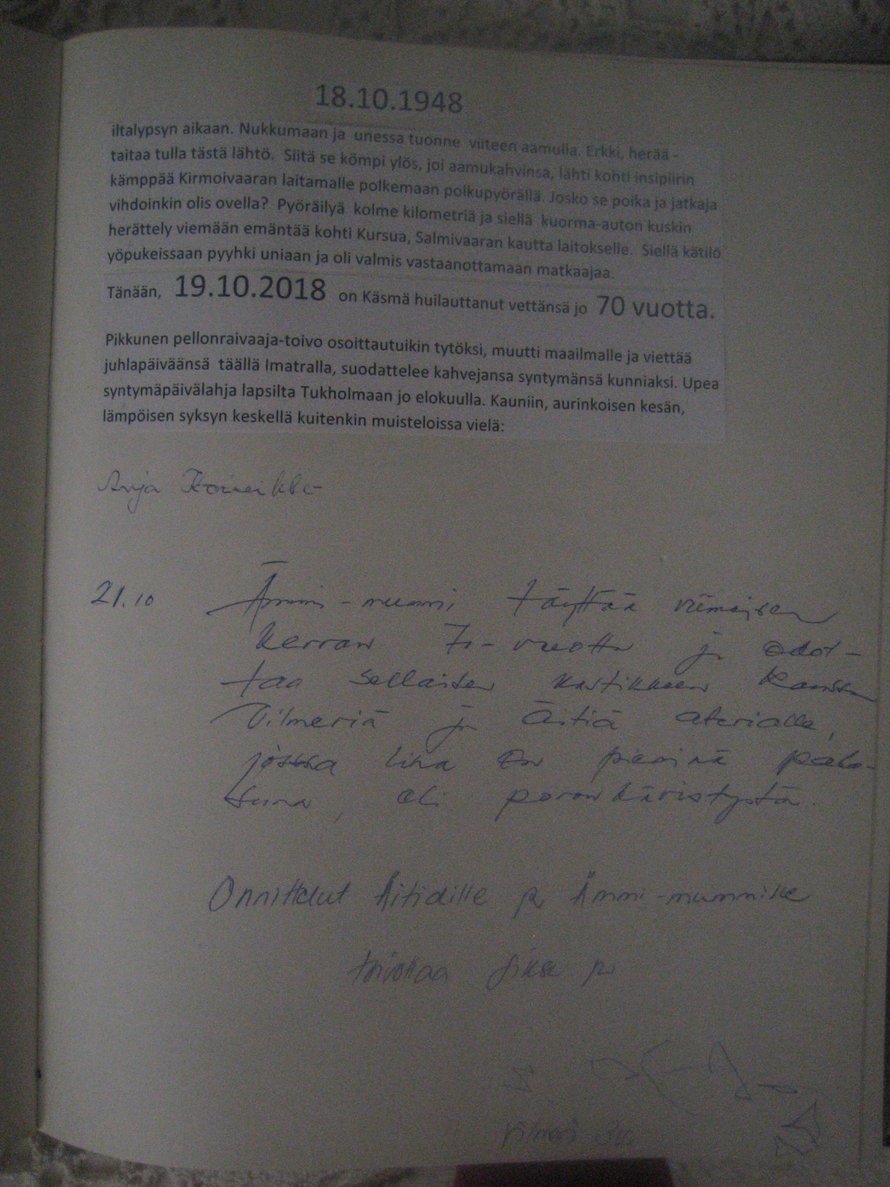 18.10.1948
iltalypsyn aikaan. Nukkumaan ja unessa tuonne viiteen aamulla. Erkki, herää -
taitaa tulla tästä lähtö. Siitä se kömpi ylös, joi aamukahvinsa, lähti kohti insipiirin
kämppää Kirmoivaaran laitamalle polkemaan polkupyörällä. Josko se poika ja jatkaja
vihdoinkin olis ovella? Pyöräilyä kolme kilometriä ja siellä kuorma-auton kuskin
herättely viemään emäntää kohti Kursua, Salmivaaran kautta laitokselle. Siellä kätilö
yöpukeissaan pyyhki uniaan ja oli valmis vastaanottamaan matkaajaa.
Tänään, 19.10.2018 on Käsmä huilauttanut vettänsä jo 70 vuotta.
Pikkunen pellonraivaaja-toivo osoittautuikin tytöksi, muutti maailmalle ja viettää
juhlapäiväänsä täällä Imatralla, suodattelee kahvejansa syntymänsä kunniaksi. Upea
syntymäpäivälahja lapsilta Tukholmaan jo elokuulla. Kauniin, aurinkoisen kesän,
lämpöisen syksyn keskellä kuitenkin muisteloissa vielä:
Arja
21.10 Ämmi-mummi täyttää viimeisen
kerran 70-vuotta ja odot-
taa sellaisen kastikkeen kanssa
Vilmeriä ja Äitiä aterialle,
jossa liha on pieninä paloi-
sina, eli poronkäristystä.
Onnittelut Äitidille ja Ämmi-mummille
toivottaa ja
Vilmeri